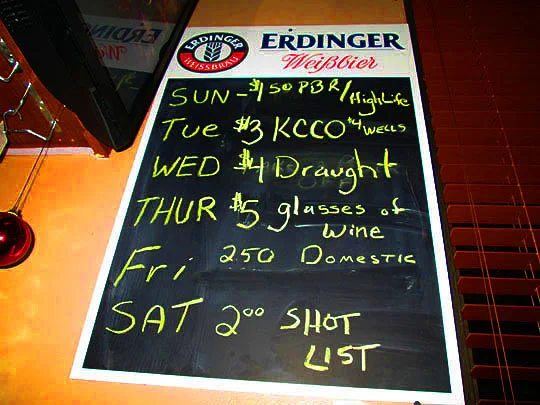 ERDINGER
WEISSBRÄU
ERDINGER
Weißbier
SUN - $1 50 PBR/HighLife
Tue $3 KCCO $4 WELLS
WED $4 Draught
THUR $5 glasses of
Wine
Fri 250 DOMESTIC
SAT 2 00 SHOT
LIST